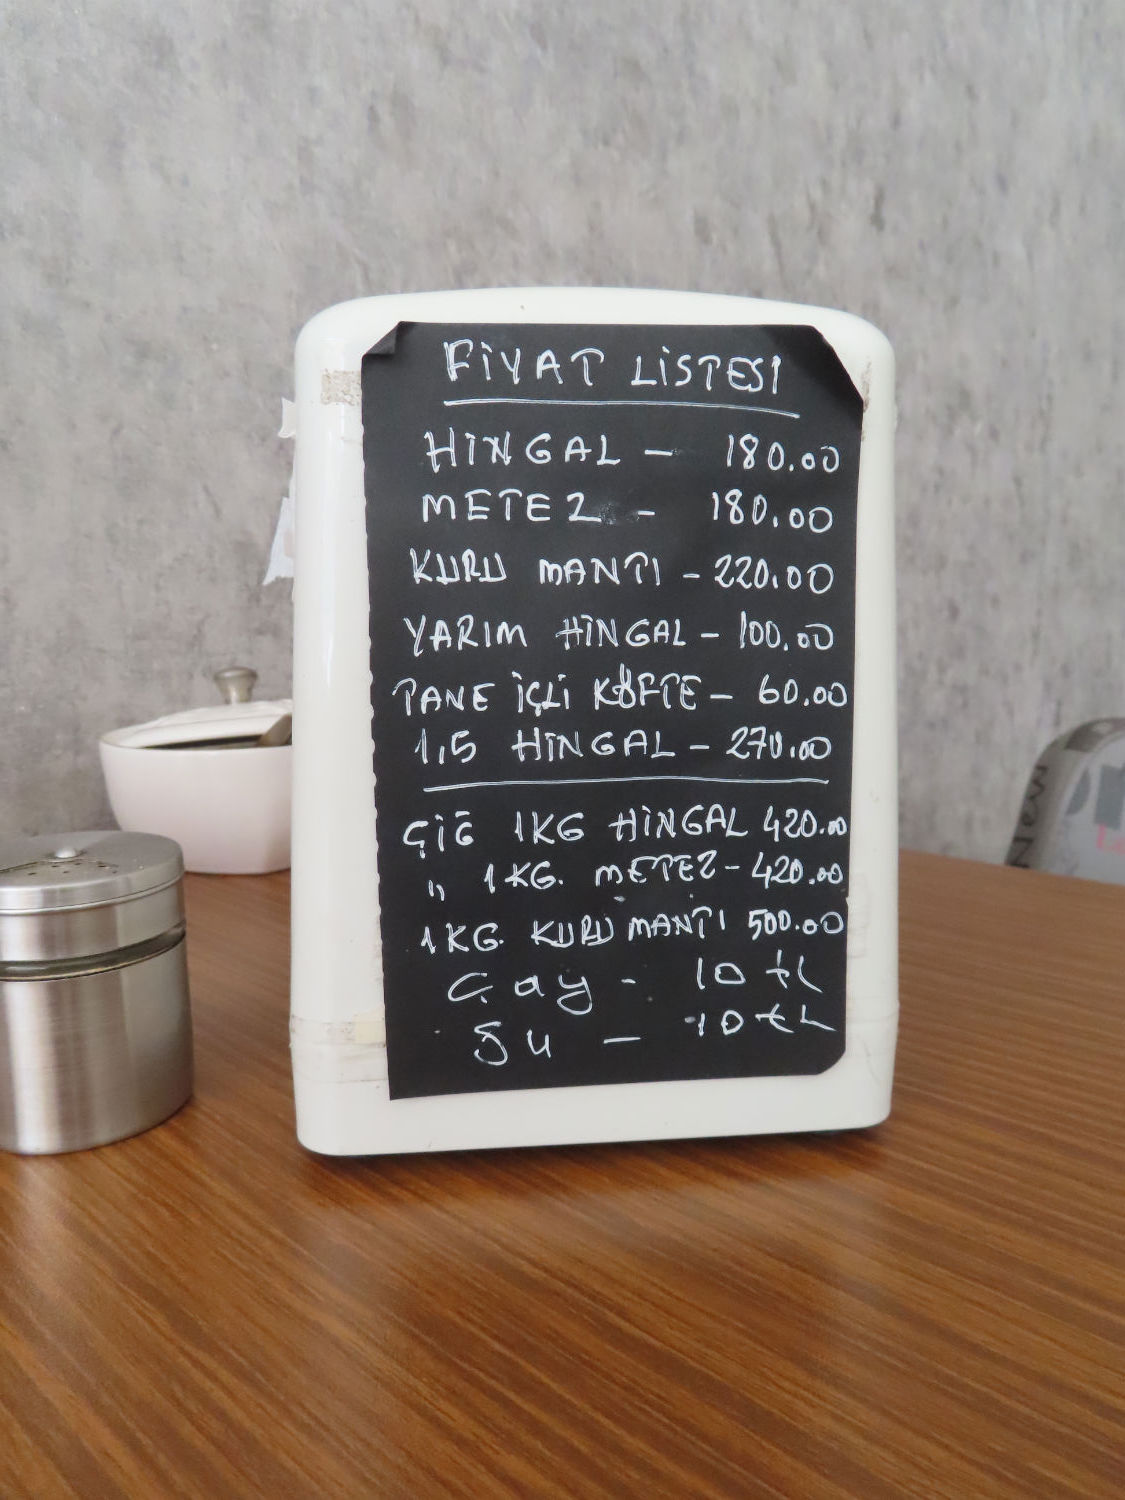 FİYAT LİSTESİ
HİNGAL – 180.00
METEZ – 180.00
KURU MANTI – 220.00
YARIM HİNGAL – 100.00
TANE İÇLİ KÖFTE – 60.00
1,5 HİNGAL – 270.00
ÇİĞ 1KG HİNGAL 420.00
" 1KG. METEZ – 420.00
1KG. KURU MANTI 500.00
Çay - 10 tL
Su – 10 tL